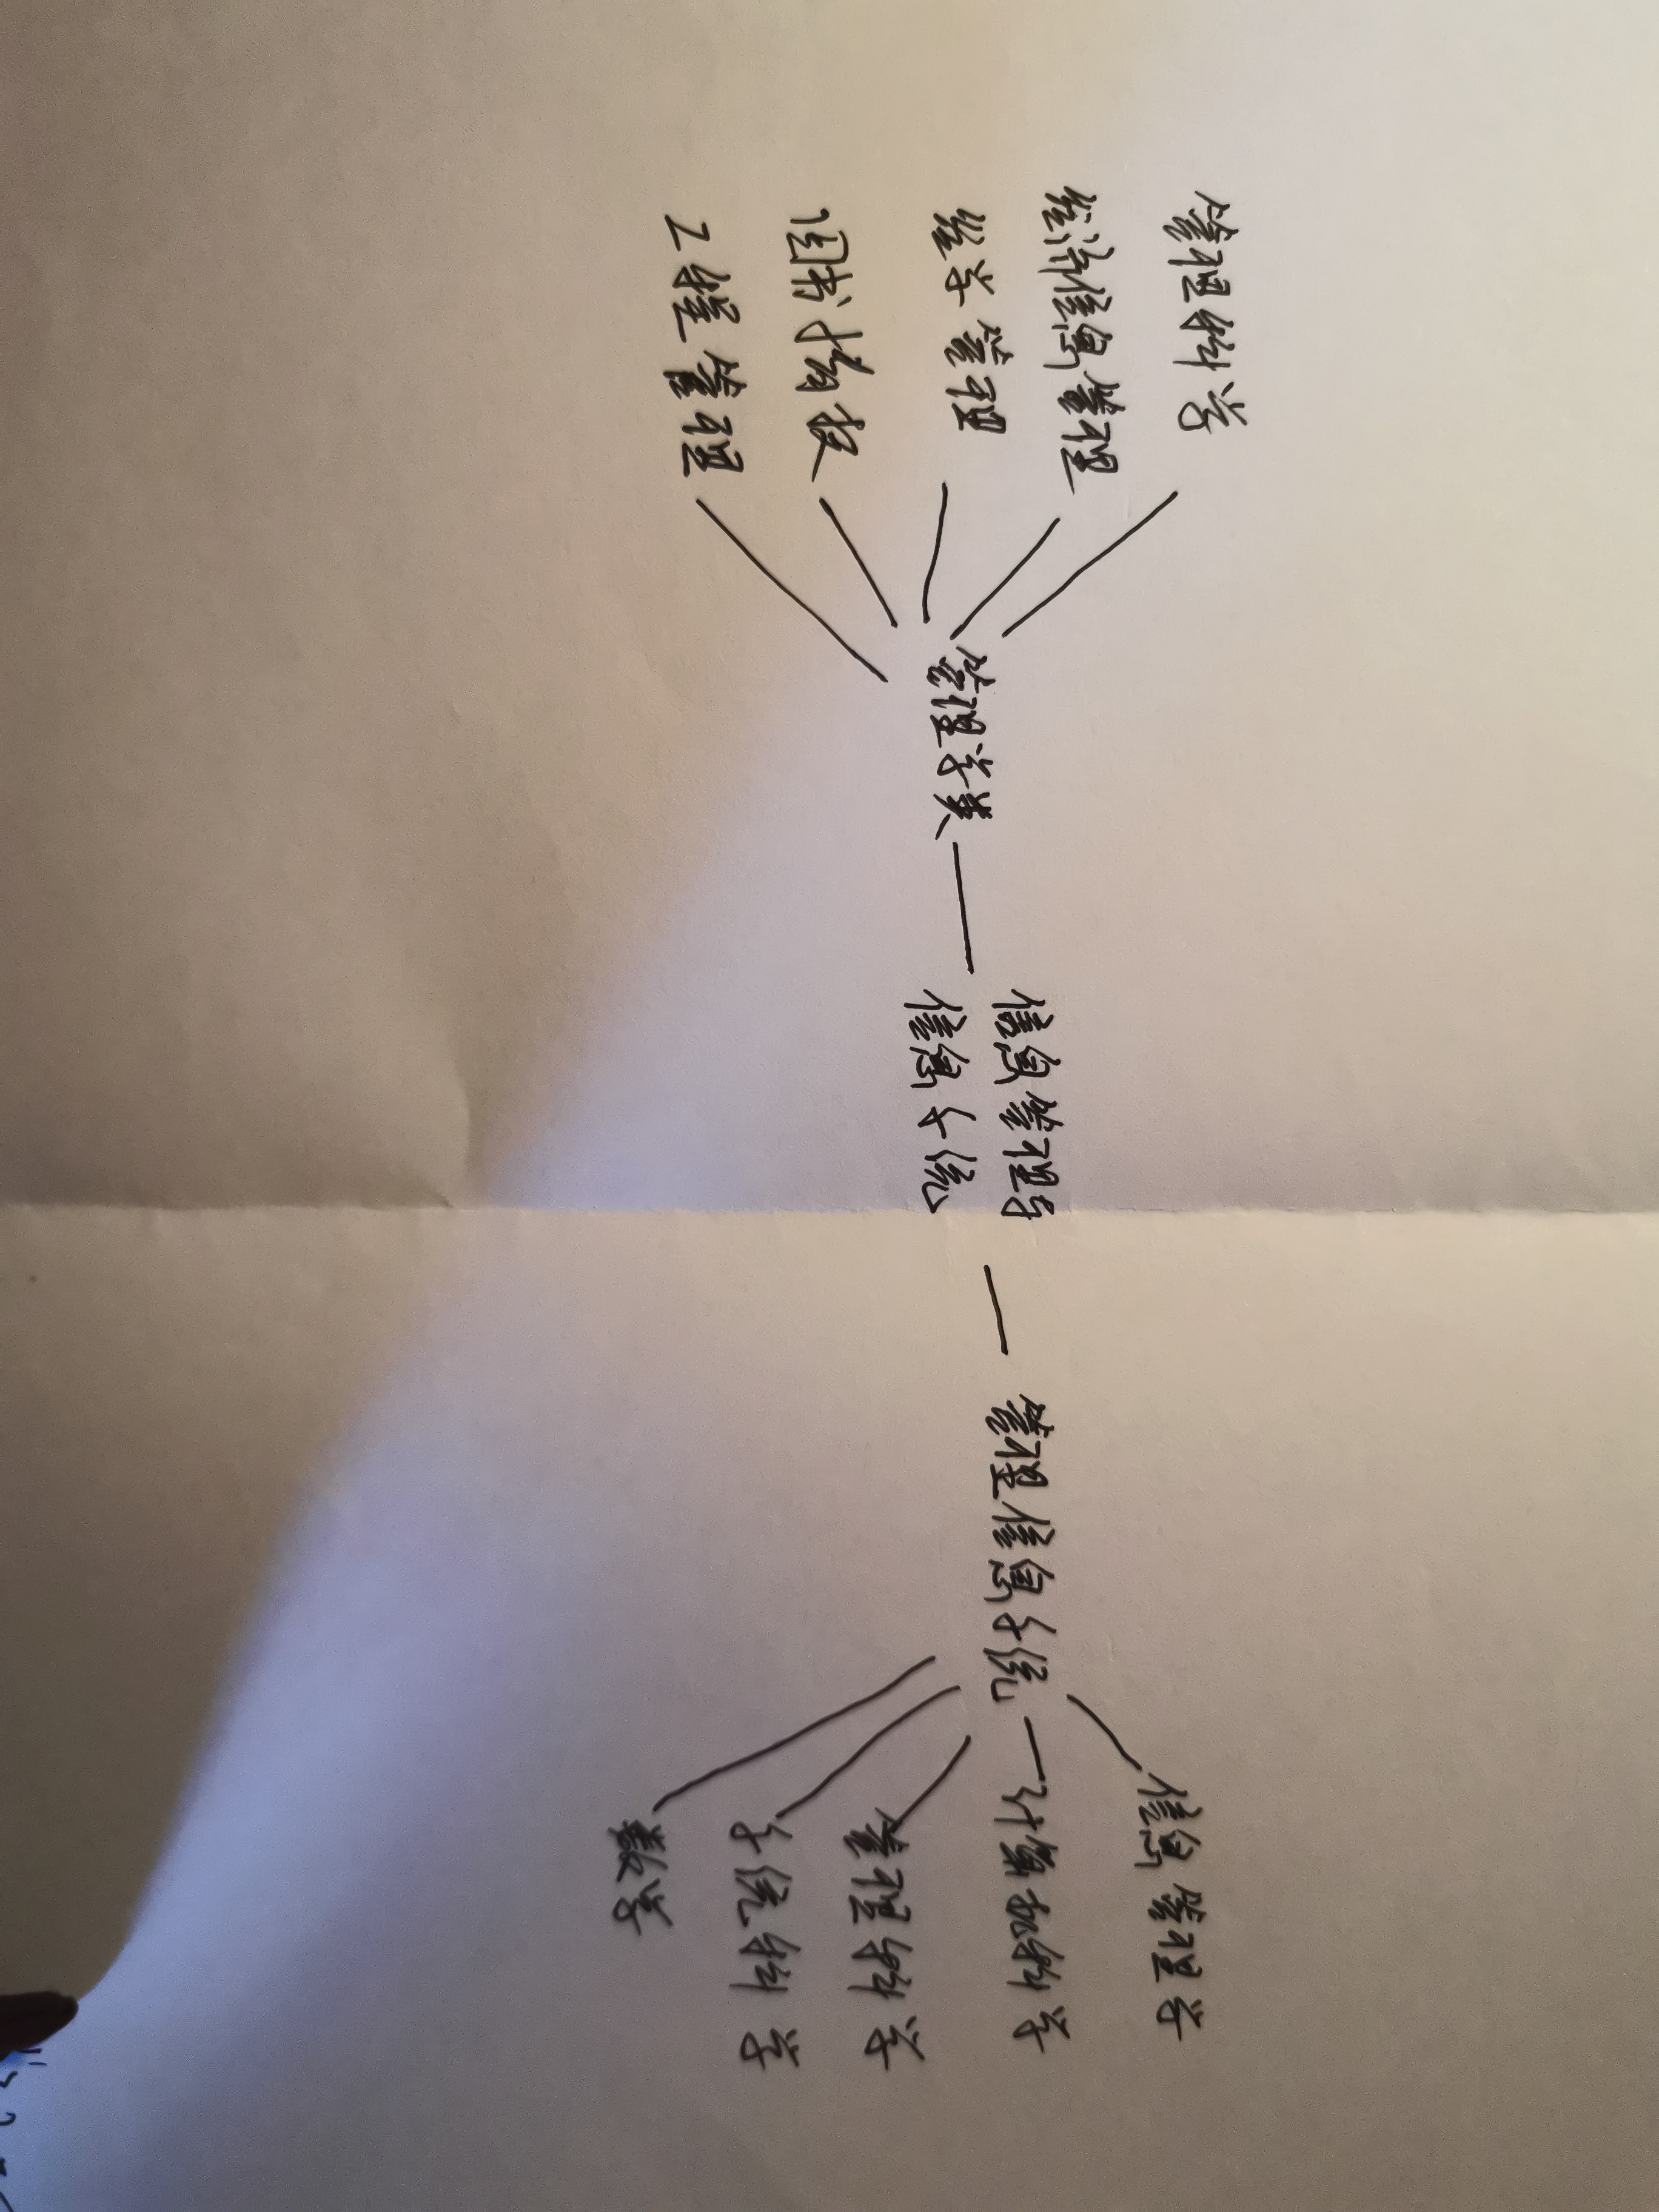 管理科学
经济信息管理
经学管理
图书情报
工程管理
管理学类
信息管理与
信息系统
管理信息系统
信息管理学
计算机科学
管理科学
系统科学
数学